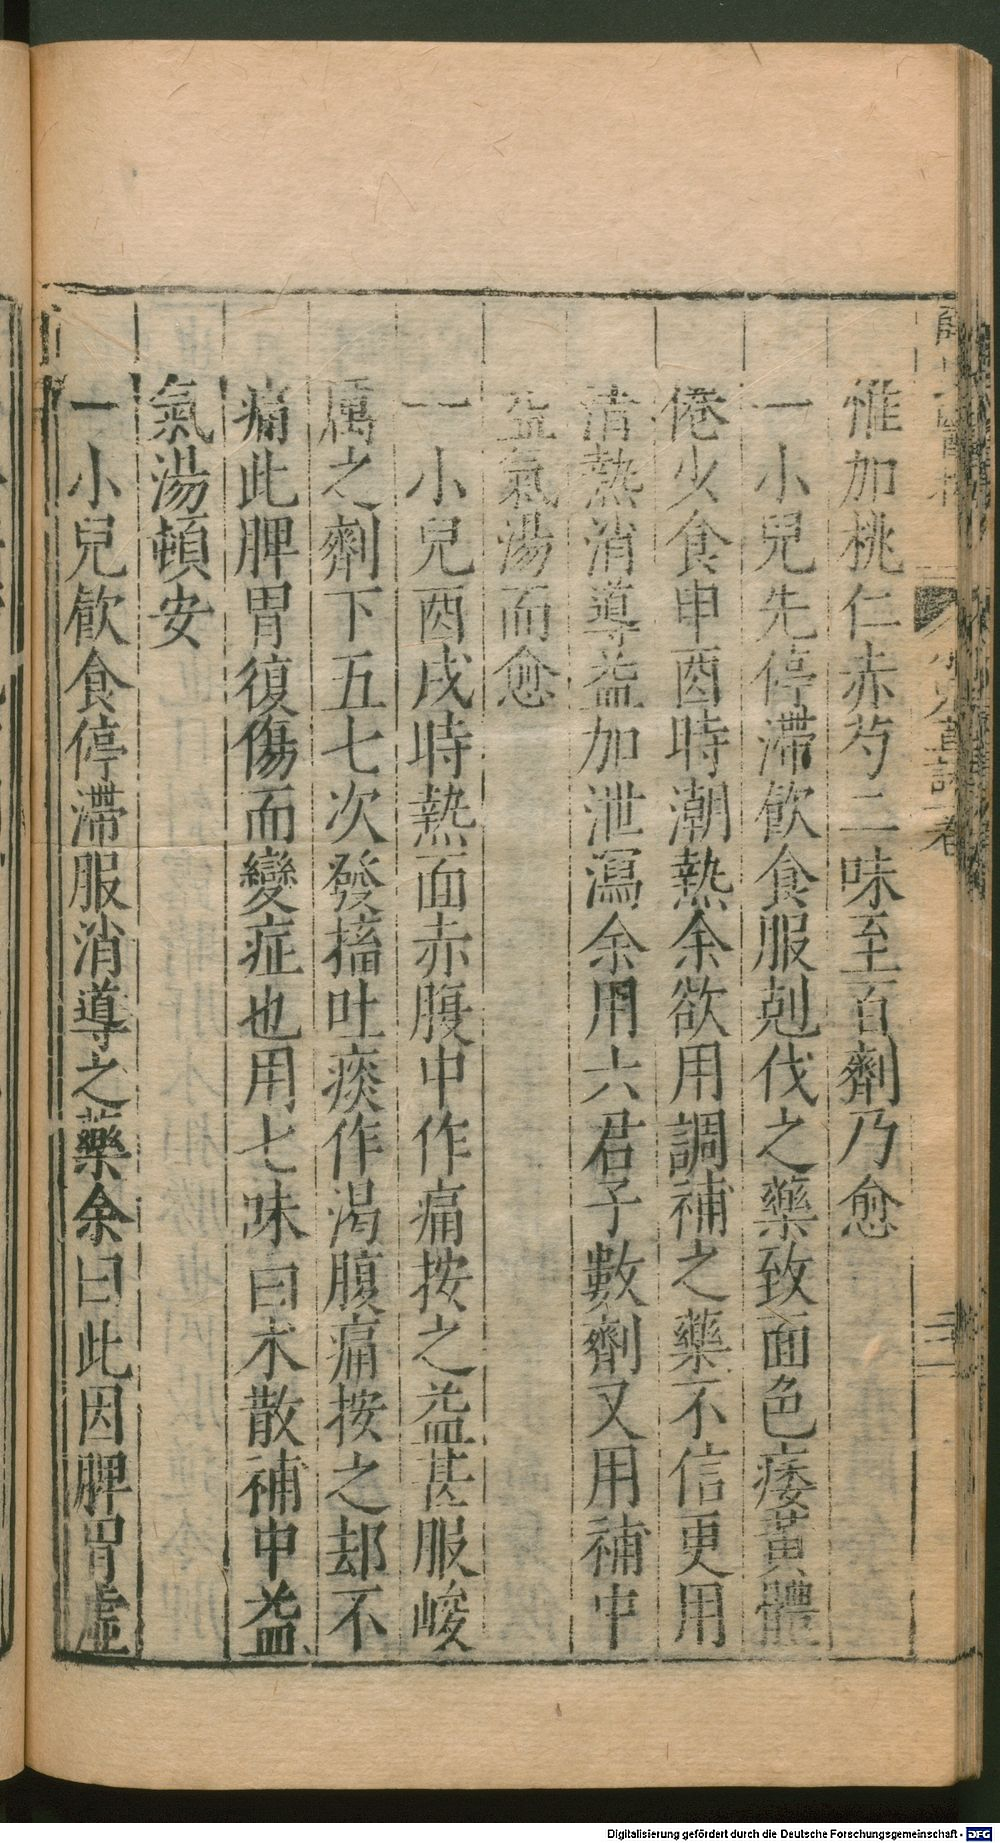 惟加桃仁赤芍二味至百劑乃愈
一小兒先停滯飲食服剋伐之藥致面色痿黃體
倦少食申酉時潮熱余欲用調補之藥不信更用
清熱消導益加泄瀉余用六君子數劑又用補中
益氣湯而愈
一小兒酉戌時熱面赤腹中作痛按之益甚服峻
厲之劑下五七次發搐吐痰作渴腹痛按之却不
痛此脾胃復傷而變症也用七味白朮散補中益
氣湯頓安
一小兒飲食停滯服消導之藥余曰此因脾胃虛
Digitalisierung gefördert durch die Deutsche Forschungsgemeinschaft - DFG